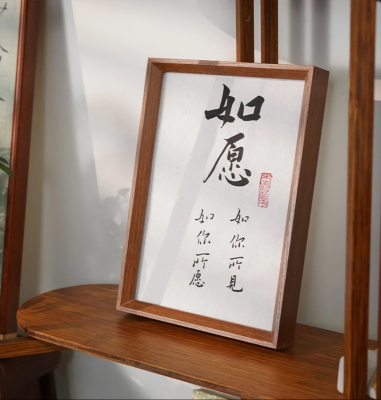 如愿
如你所見
如你所愿